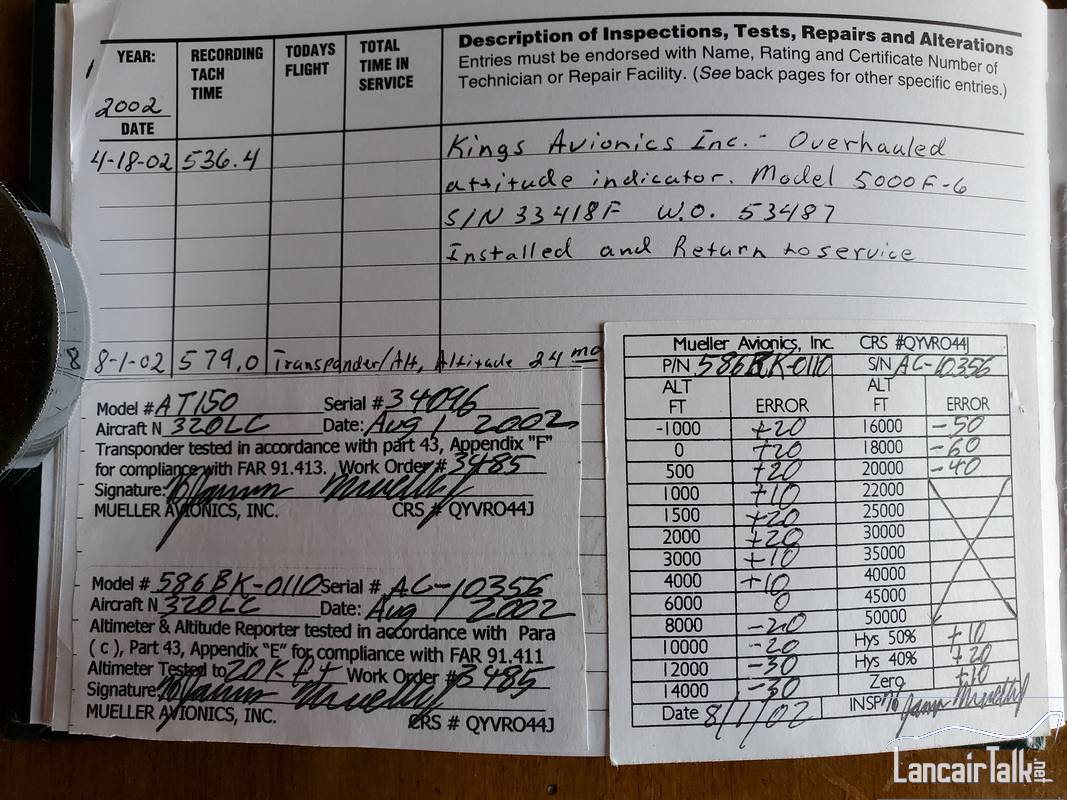 YEAR:
2002
DATE
RECORDING TACH TIME
TODAYS FLIGHT
TOTAL TIME IN SERVICE
Description of Inspections, Tests, Repairs and Alterations
Entries must be endorsed with Name, Rating and Certificate Number of
Technician or Repair Facility. (See back pages for other specific entries.)
4-18-02 536.4 Kings Avionics Inc.- Overhauled
attitude indicator. Model 5000F-6
S/N 33418F W.O. 53487
Installed and Return to service
8-1-02 579.0 Transponder/Alt, Altitude 24 mo
Model # AT150 Serial # 34096
Aircraft N 320LC Date: Aug 1 2002
Transponder tested in accordance with part 43, Appendix "F"
for compliance with FAR 91.413. Work Order # 3485
Signature:
MUELLER AVIONICS, INC. CRS # QYVRO44J
Model # 586BK-0110 Serial # AC-10356
Aircraft N 320LC Date: Aug 1 2002
Altimeter & Altitude Reporter tested in accordance with Para
( c ), Part 43, Appendix "E" for compliance with FAR 91.411
Altimeter Tested to 20K Ft Work Order # 3485
Signature:
MUELLER AVIONICS, INC. CRS # QYVRO44J
Mueller Avionics, Inc. CRS #QYVRO44J
P/N 586BK-0110 S/N AC-10356
ALT FT ERROR ALT FT ERROR
-1000 +20 16000 -50
0 +20 18000 -60
500 +20 20000 -40
1000 +10 22000
1500 +20 25000
2000 +20 30000
3000 +10 35000
4000 +10 40000
6000 0 45000
8000 -20 50000
10000 -20 Hys 50% +10
12000 -30 Hys 40% +20
14000 -30 Zero +10
Date 8/1/02 INSP
LancairTalk.net